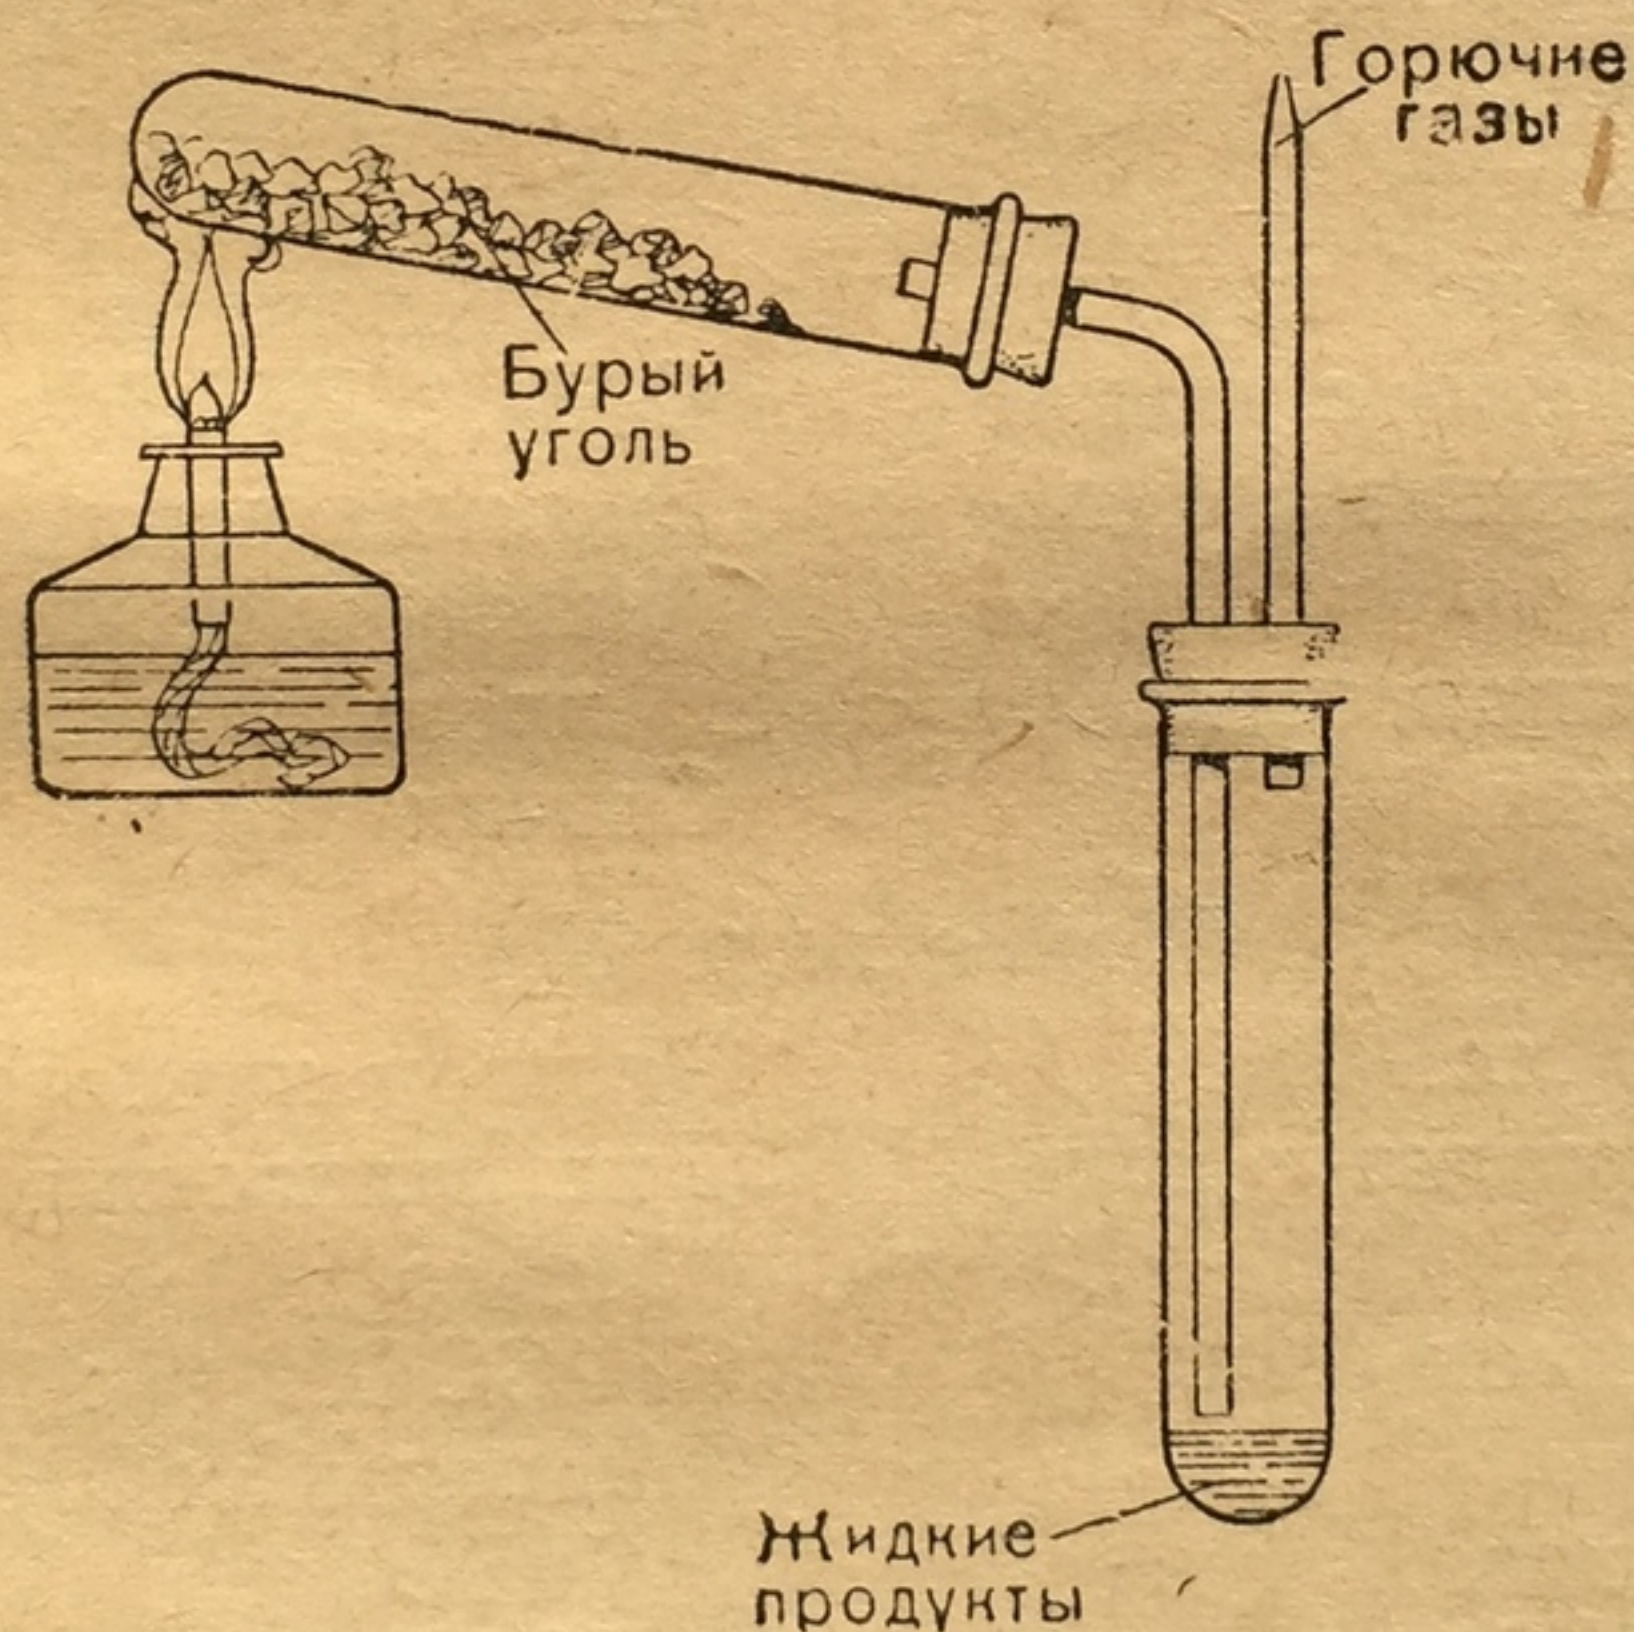 Горючие
газы
Бурый
уголь
Жидкие
продукты